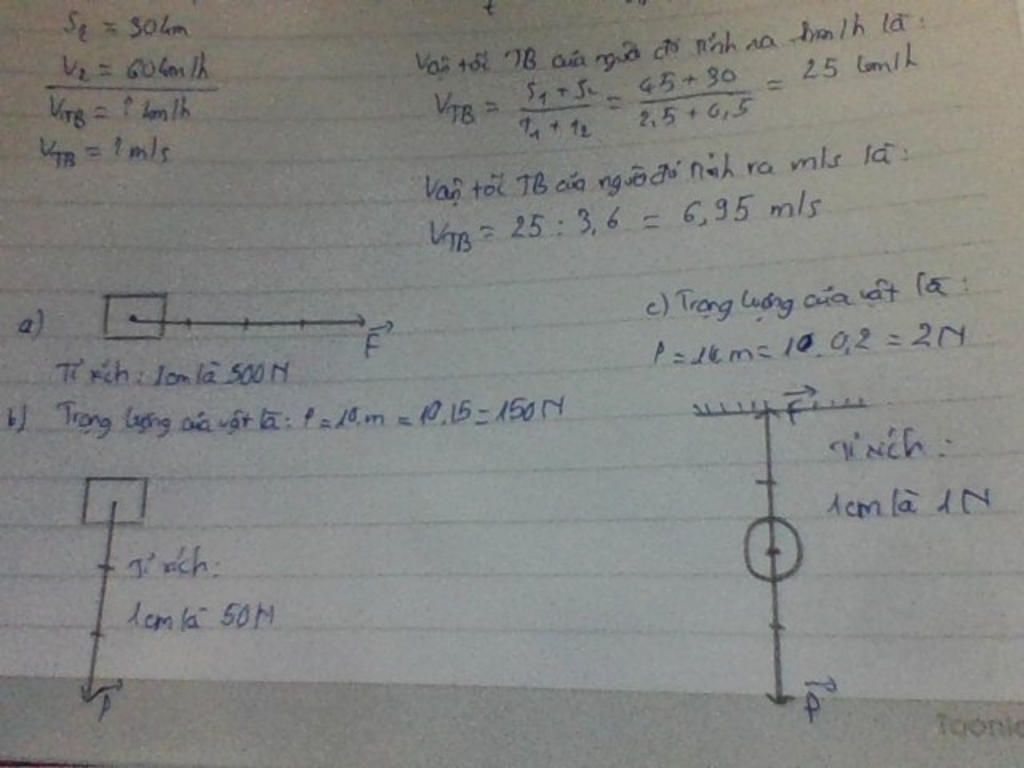 S₂ = 30km
V₂ = 60km/h
V_TB = ? km/h
V_TB = ? m/s
Vận tốc TB của người đó tính ra km/h là:
V_TB = (S₁ + S₂)/(t₁ + t₂) = (45 + 30)/(2,5 + 0,5) = 25 km/h
Vận tốc TB của người đó tính ra m/s là:
V_TB = 25 : 3,6 = 6,95 m/s
a)
F
Tỉ xích: 1cm là 500N
b) Trọng lượng của vật là: P = 10.m = 10.15 = 150N
Tỉ xích:
1cm là 50N
P
c) Trọng lượng của vật là:
P = 10.m = 10.0,2 = 2N
F
Tỉ xích:
1cm là 1N
P